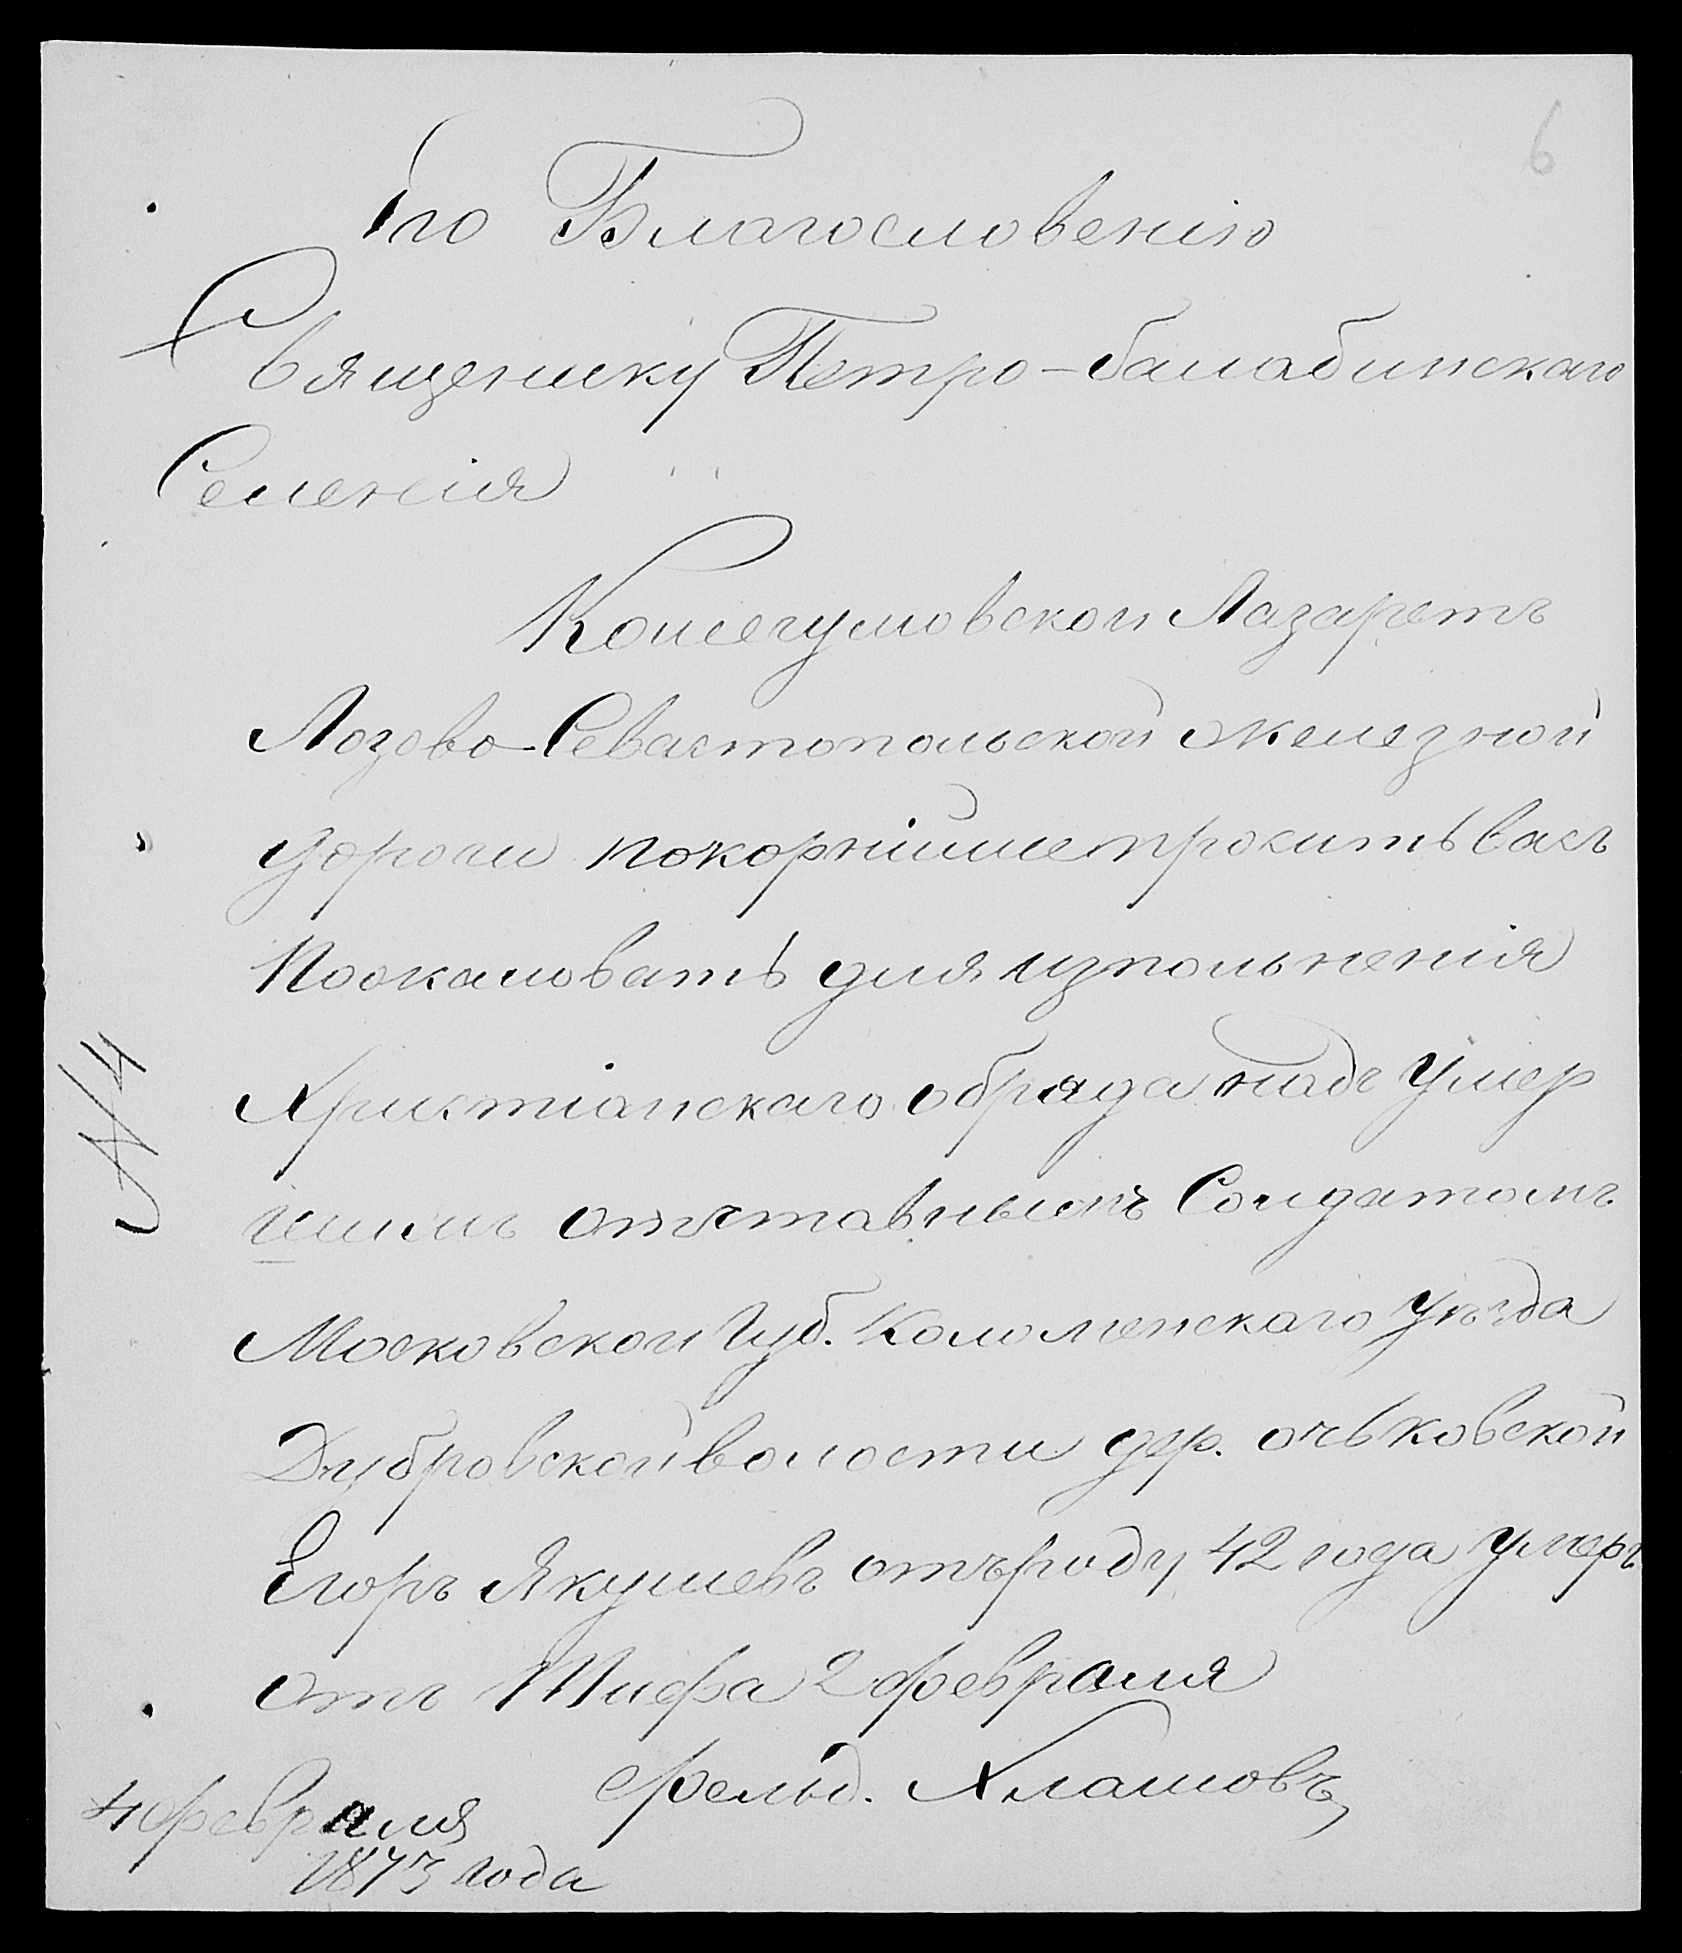 6
Его Благословенію
Священику Петро-балабинскаго
Селенія
Кошегумовскои Лазаретъ
Лозово-Севастопольской железной
дороги покорнійше проситъ васъ
Пожаловать для изпольненія
Христіанскаго обряда надъ Умер
шимъ отъставнымъ Солдатомъ
Московскои Губ. Коломенскаго Уѣзда
Дубровской волости дер. очьковской
Егоръ Якушевъ отъроду 42 года умеръ
отъ Тифа 2 февраля
фельд. Хлашовъ
4 февраля
1873 года
№ 4